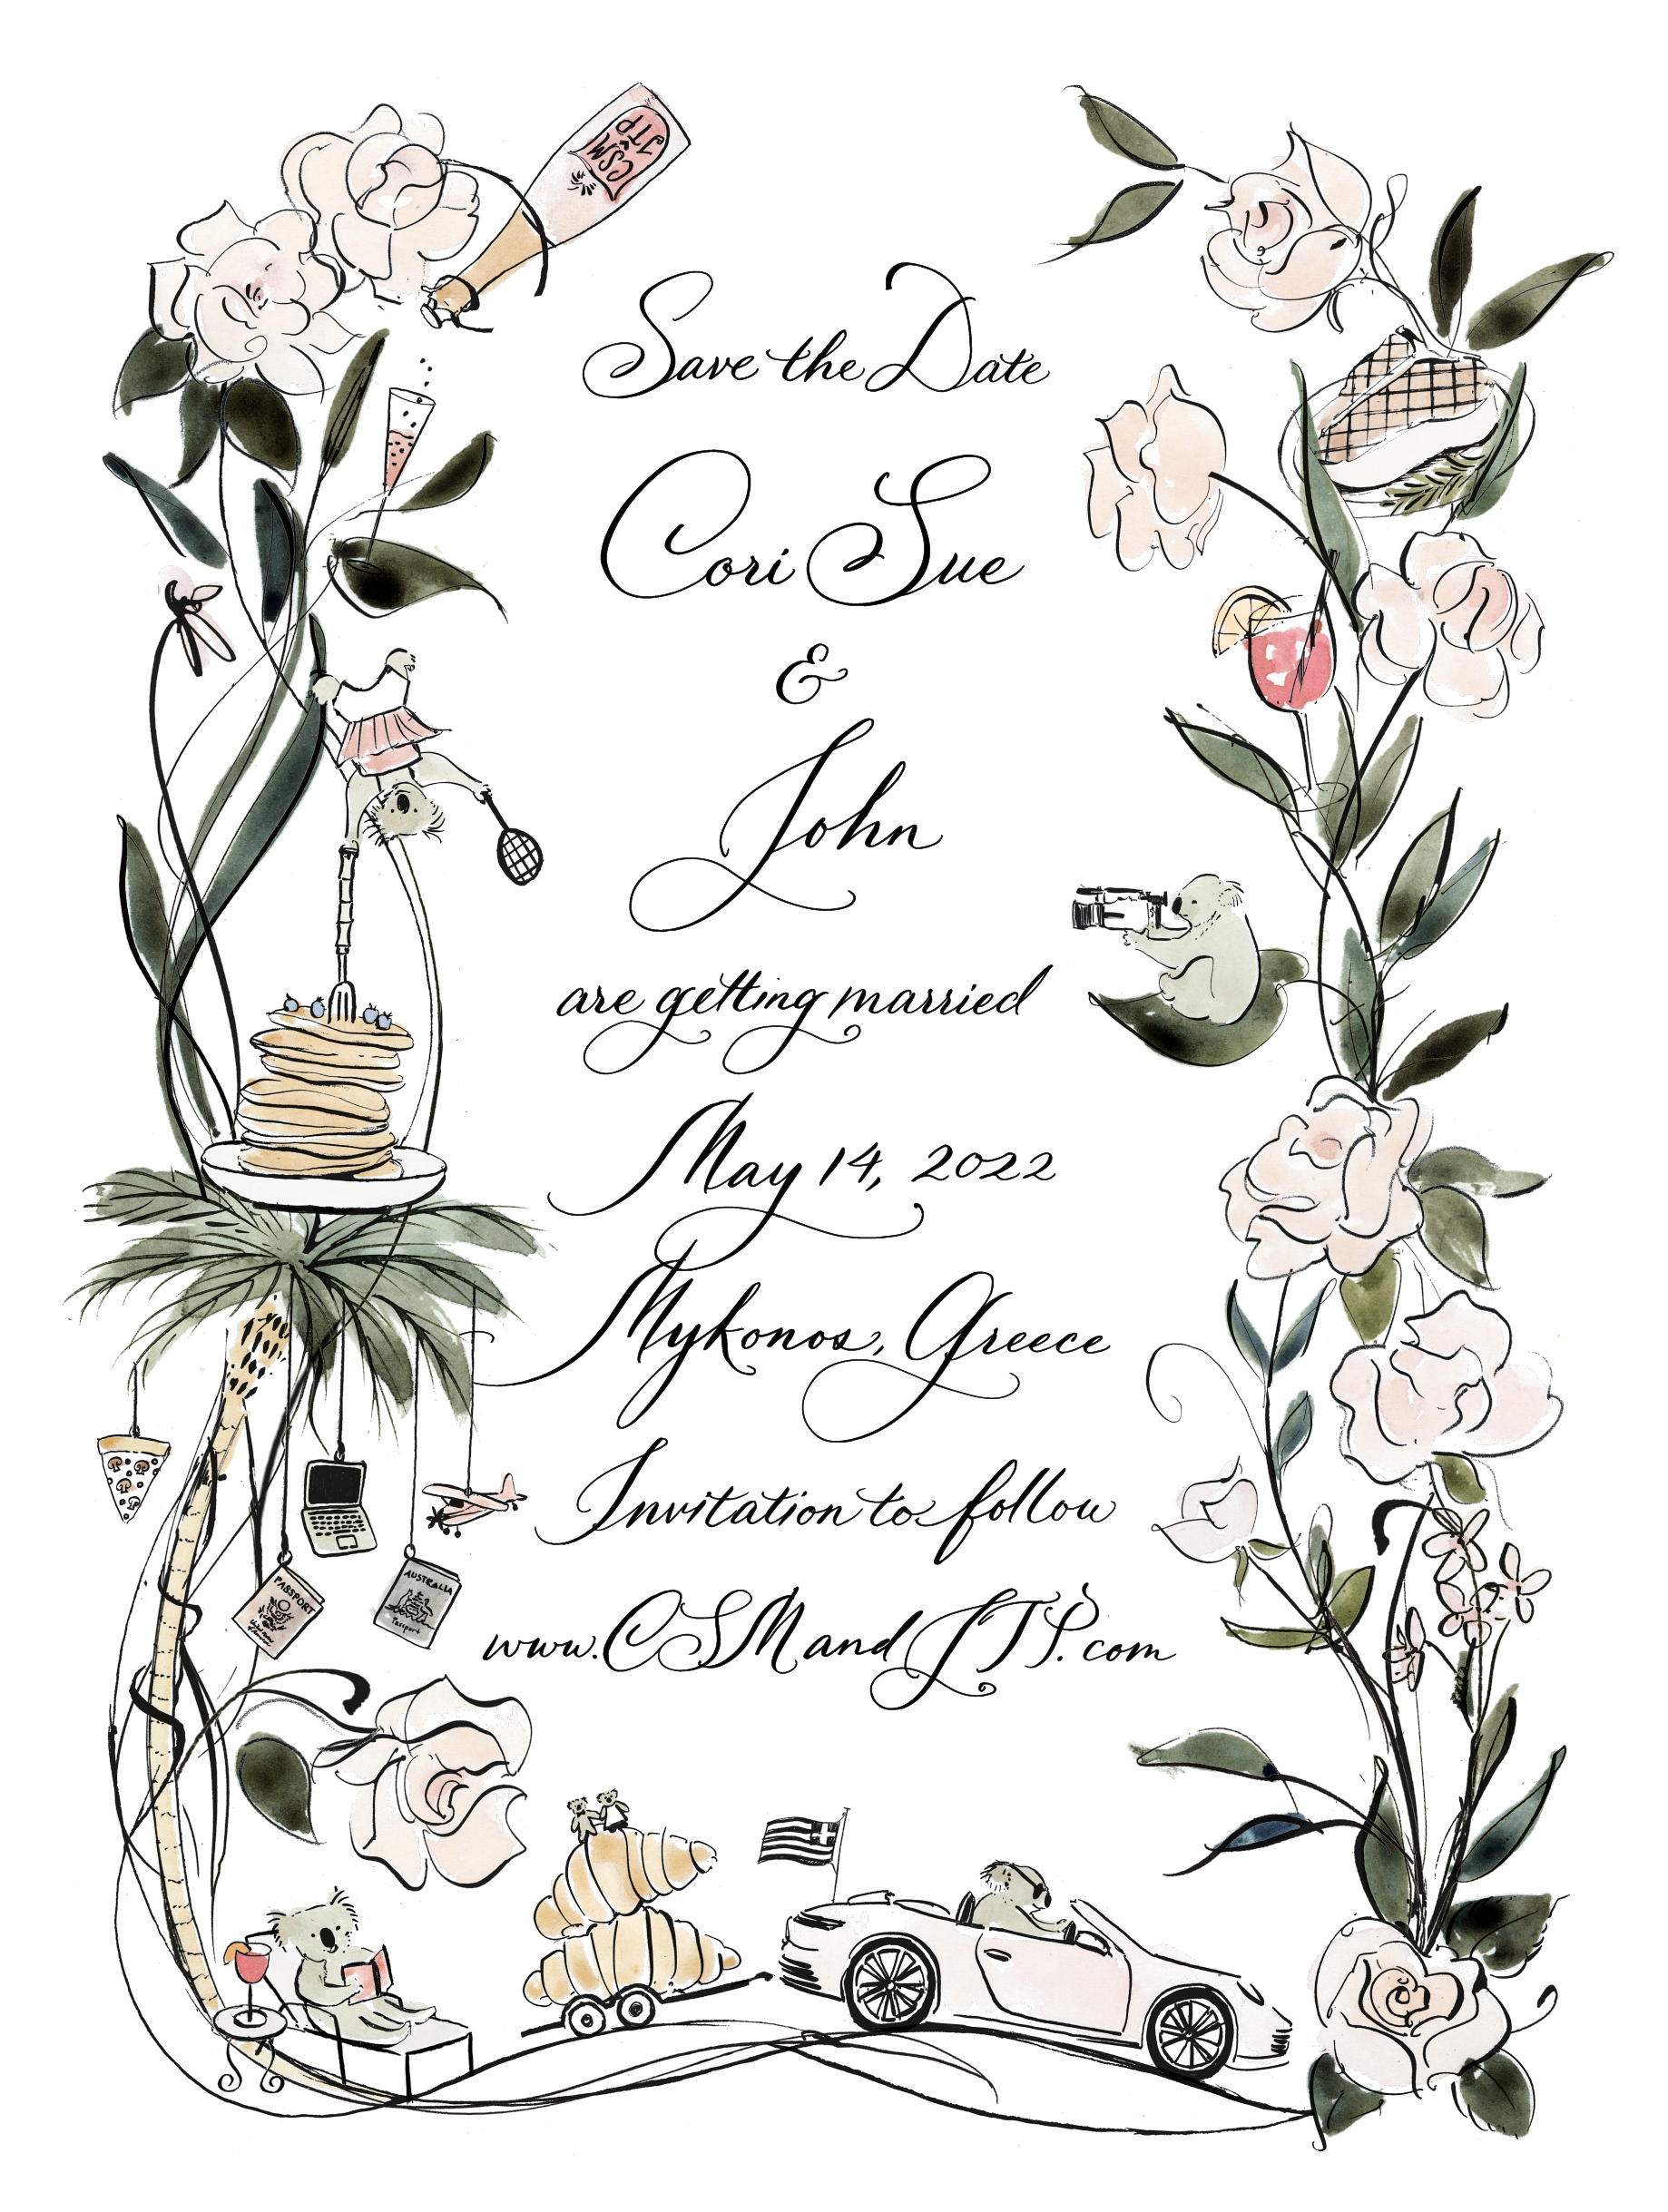 CSM
&
JTP
Save the Date
Cori Sue
&
John
are getting married
May 14, 2022
Mykonos, Greece
Invitation to follow
PASSPORT
AUSTRALIA
Passport
www.CSMandJTP.com